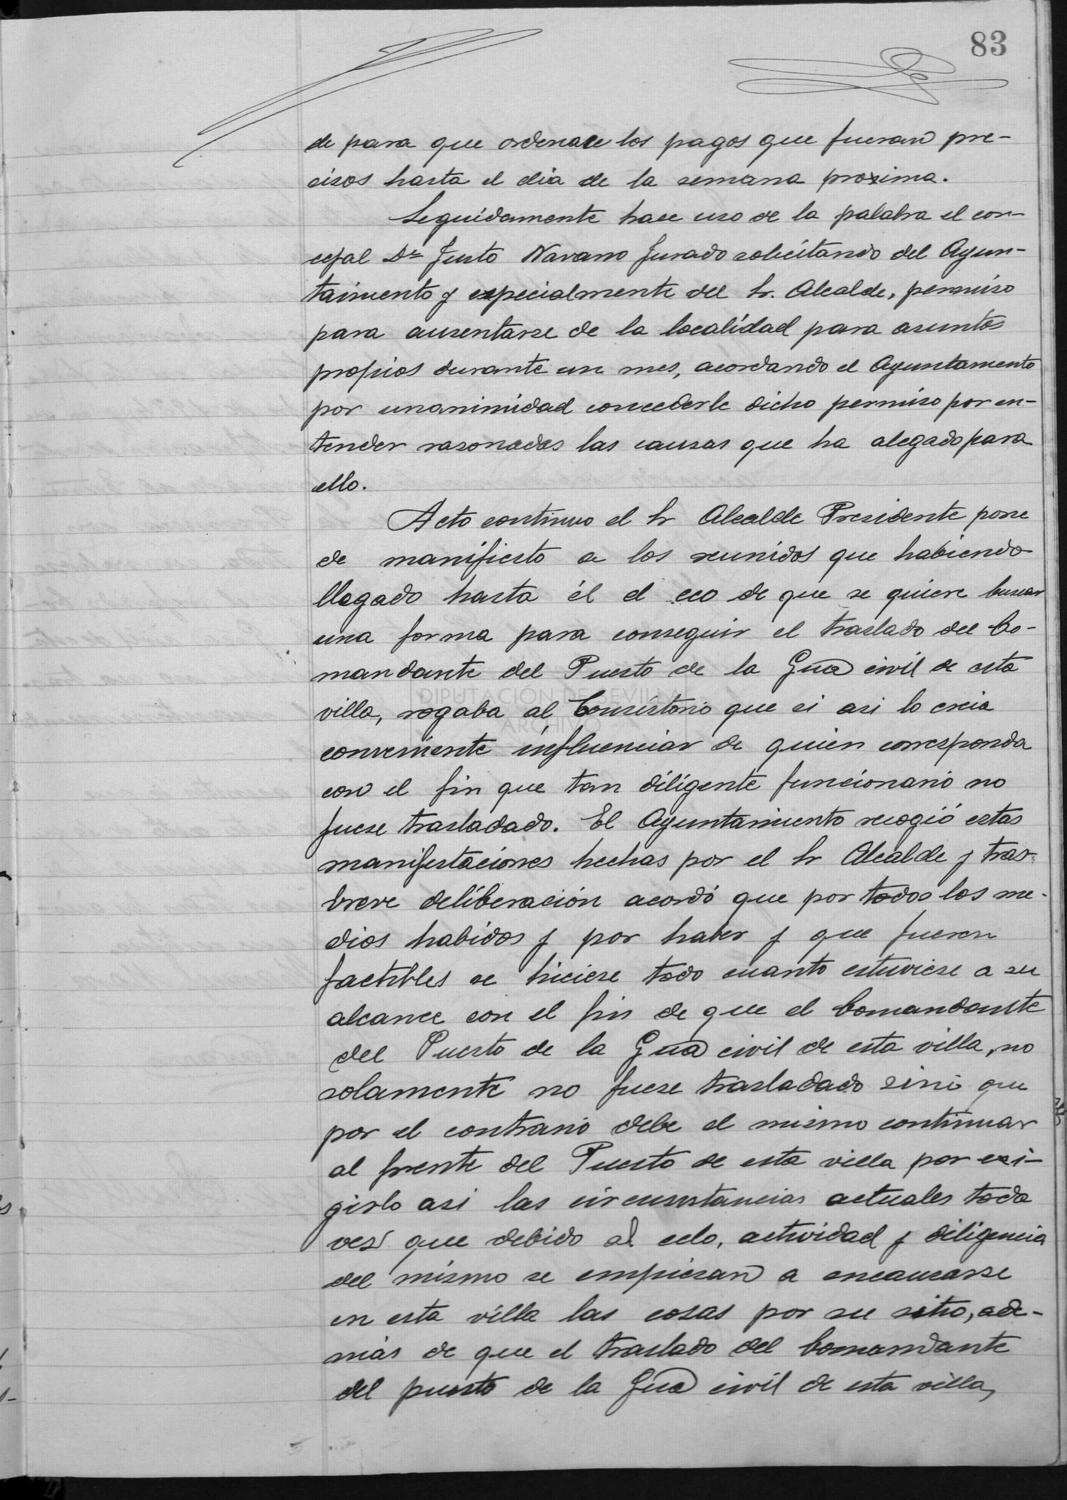 83
de para que ordenace los pagos que fueran pre-
cisos hasta el dia de la semana proxima.
Seguidamente hace uso de la palabra el con-
cejal Dn Justo Navarro Jurado solicitando del Ayun-
taimento y especialmente del Sr. Alcalde, permiso
para ausentarse de la localidad para asuntos
propios durante un mes, acordando el Ayuntamento
por unanimidad concederle dicho permiso por en-
tender rasonadas las causas que ha alegado para
ello.
Acto continuo el Sr Alcalde Presidente pone
de manifiesto a los reunidos que habiendo
llegado hasta él el eco de que se quiere buscar
una forma para conseguir el traslado del Co-
mandante del Puesto de la Gua civil de esta
villa, rogaba al Consistorio que si asi lo creia
conveniente influenciar de quien corresponda
con el fin que tan diligente funcionario no
fuese trasladado. El Ayuntamiento recogió estas
manifestaciones hechas por el Sr Alcalde y tras
breve deliberación acordó que por todos los me-
dios habidos y por haber y que fueran
factibles se hiciese todo cuanto estuviese a su
alcance con el fin de que el Comandante
del Puesto de la Gua civil de esta villa, no
solamente no fuese trasladado sino que
por el contrario debe el mismo continuar
al frente del Puesto de esta villa por exi-
girlo asi las circunstancias actuales toda
ves que debido al celo, actividad y diligencia
del mismo se empiesan a encaucarse
en esta villa las cosas por su sitio, ade-
más de que el traslado del Comandante
del puesto de la Gua civil de esta villa,
DIPUTACIÓN DE SEVILLA
ARCHIVO